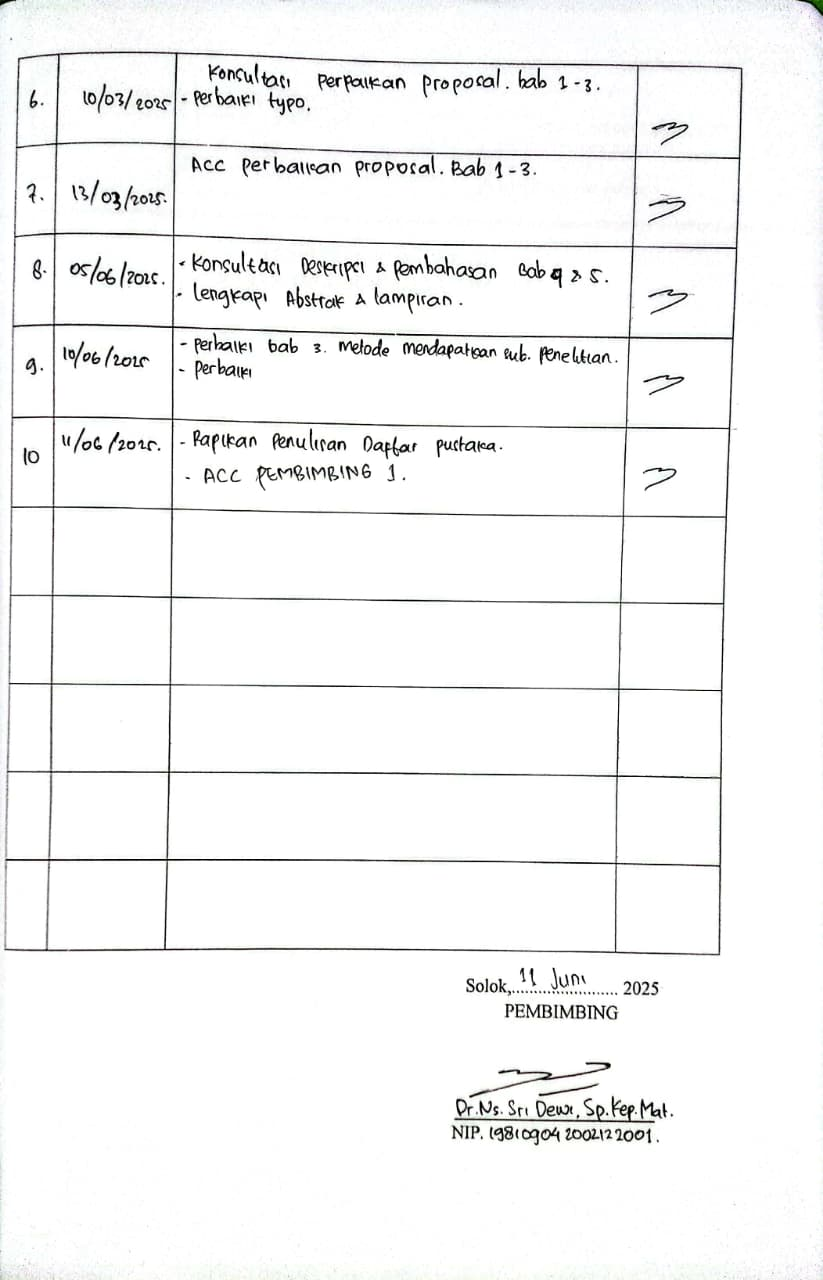 Konsultasi perpaikan proposal. bab 1-3.
6. 10/03/2025 - perbaiki typo.
ACC perbaikan proposal. Bab 1-3.
7. 13/03/2025.
8. 05/06/2025. - Konsultasi Deskripsi & pembahasan Bab 4 & 5.
- lengkapi Abstrak & lampiran.
9. 10/06/2025 - perbaiki bab 3. Metode mendapatkan sub. penelitian.
- perbaiki
10 11/06/2025. - Rapikan Penulisan Daftar pustaka.
- ACC PEMBIMBING 1.
Solok, 11 Juni 2025
PEMBIMBING
Dr.Ns. Sri Dewi, Sp.Kep.Mat.
NIP. 19810904 2002122001.